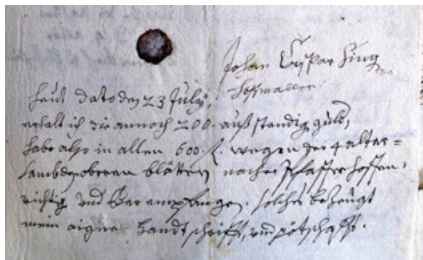 Johan Caspar Sing
Hofmaller.
Heut dato den 23 July,
erhalt ich die annoch 200 außstendig guld,
habe also in allen 600 fl. wegen der 4 altar=
blätter nacher Pfaffenhoffen,
richtig und Bar empfangen. solches bezeugt
mein aigne Handtschrifft, und pötschafft.